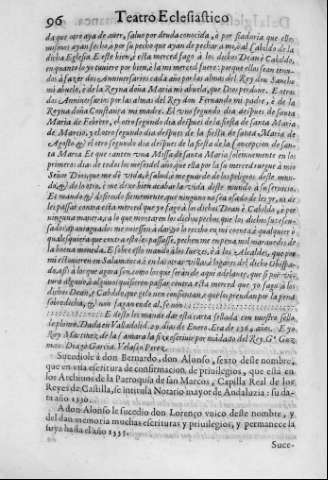 96 Teatro Eclesiastico
da que otre aya de auer, saluo por deuda conocida, è por fiadoria que ellos
mismos ayan fecho, è por su pecho que ayan de pechar a mi, ò al Cabildo de la
dicha Eglesia. E este bien, è esta merced fago à los dichos Dean è Cabildo,
en quanto lo yo tuuiere por bien, è la mi merced fuere: porque ellos sean tenudos
à fazer dos Anniuersarios cada año por las almas del Rey don Sancho
mi abuelo, è de la Reyna doña Maria mi abuela, que Dios perdone. E otros
dos Anniuersarios por las almas del Rey don Fernando mi padre, è de la
Reyna doña Constança mi madre. El vno segundo dia despues de santa
Maria de Febrero, el otro segundo dia despues de la fiesta de santa Maria
de Março, y el otro segundo dia despues de la fiesta de santa Maria de
Agosto, & el otro segundo dia despues de la fiesta de la Concepcion de santa
Maria. Et que canten vna Missa de santa Maria solemnemente en los
primeros dias de todos los meses del año, que ella por la su merced ruegue à mio
Señor Dios, que me dè vida, è salud, è me guarde de los peligros deste mundo,
& de lo otro, è me dexe bien acabar la vida deste mundo à su seruicio.
Et mando, & defiendo firmemente, que ninguno no sea osado de les yr, ni de
les passar contra esta merced que yo fago à los dichos Dean è Cabildo, è por
ninguna manera, ca lo que montaren los dichos pechos
quales quiera que contra esto les passasse, pechenme en pena mil marauedis de
la buena moneda. E sobre esto mando à los Iuezes, è à los Alcaldes, que por
mi estuuieren en Salamanca
sobredicha, & non fagan ende al, so
E desto les mande dar esta carta sellada con nuestro sello
de plomo. Dada en Valladolid. 20. dias de Enero. Era de 1364. años. E yo
Ruy Martinez de la Camara la fize escriuir por mandado del Rey. G.ª Guzman.
Diego Garcia. Velasco Perez.
Sucediole à don Bernardo, don Alonso, sexto deste nombre,
que en vna escritura de confirmacion de priuilegios, que està en
los Archiuos de la Parroquia de san Marcos, Capilla Real de los
Reyes de Castilla, se intitula Notario mayor de Andaluzia: su data
año 1330.
A don Alonso le sucedio don Lorenço vnico deste nombre, y
del dan memoria muchas escrituras y priuilegios, y permanece la
suya hasta el año 1335.
Suce-